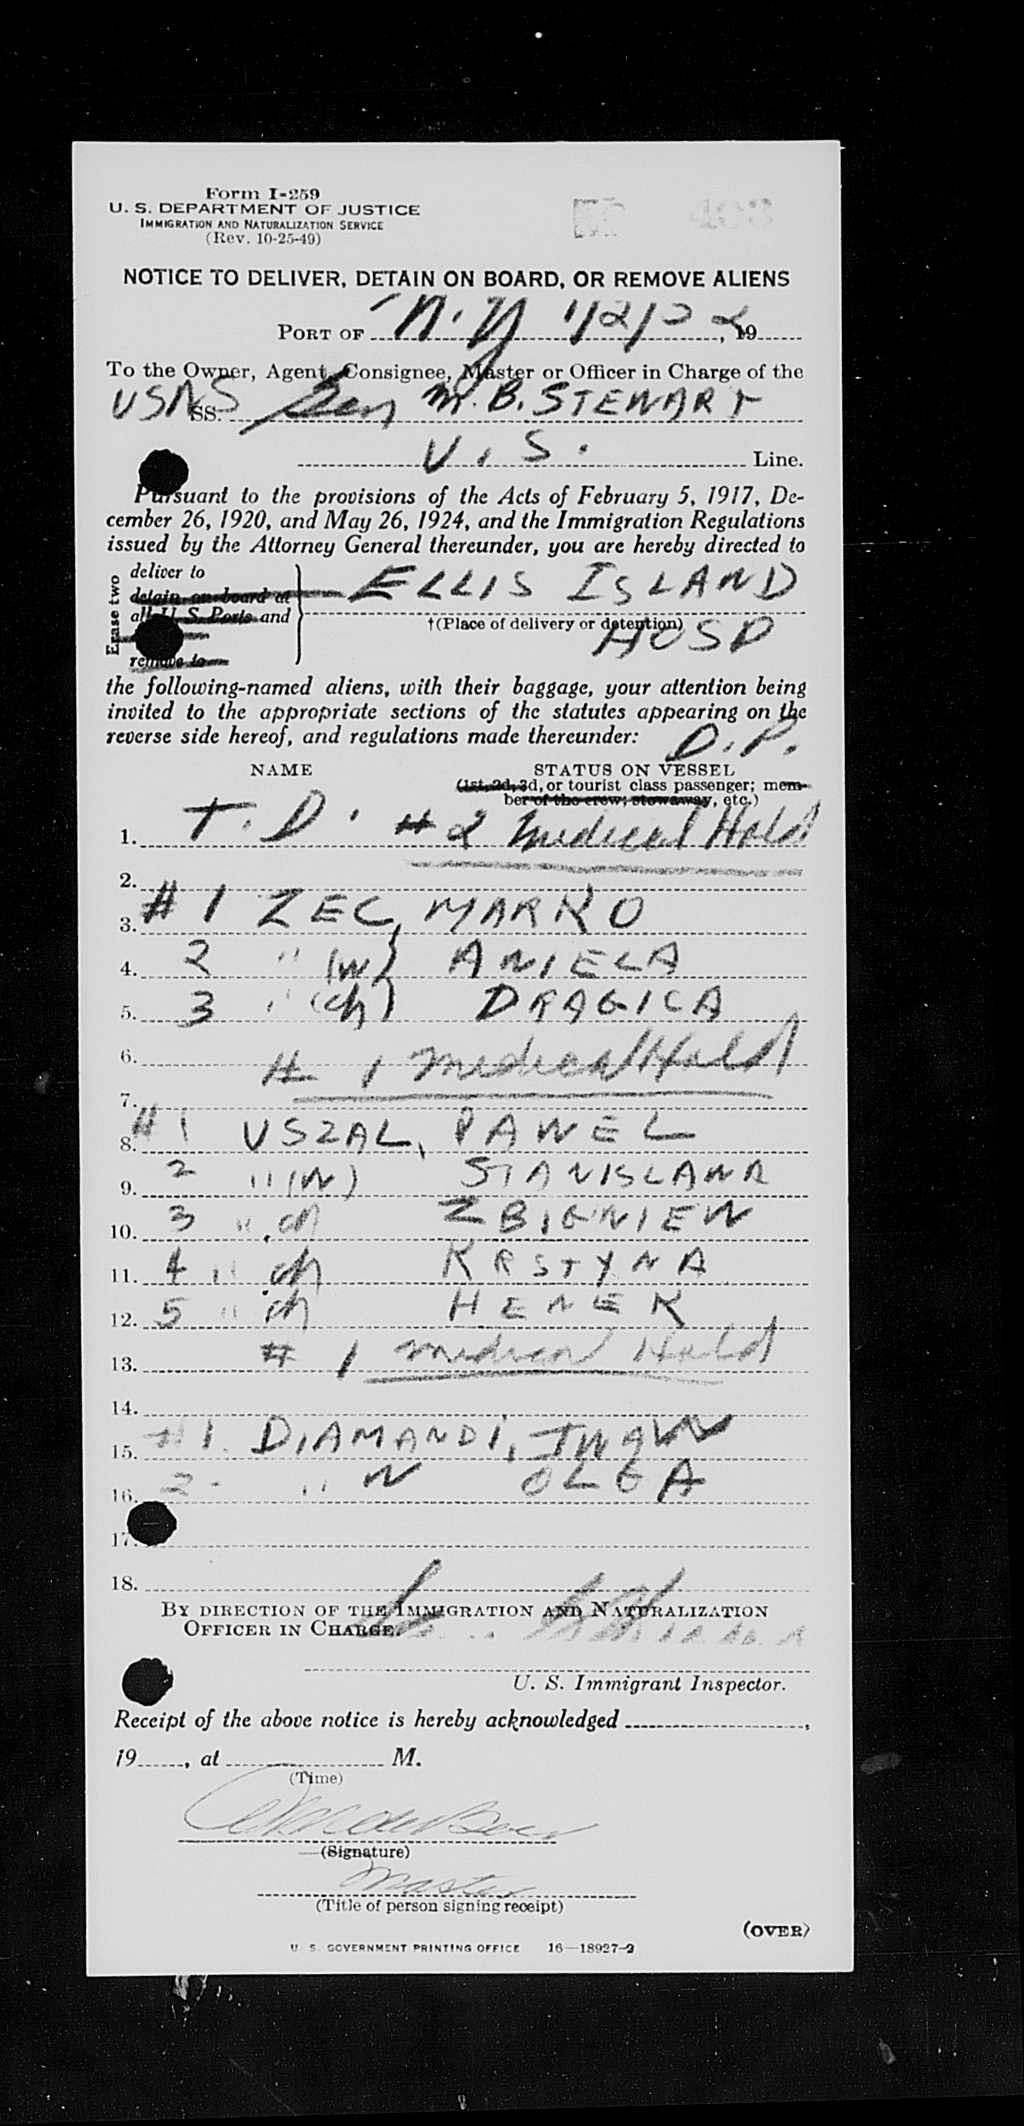 Form I-259
U. S. DEPARTMENT OF JUSTICE
IMMIGRATION AND NATURALIZATION SERVICE
(Rev. 10-25-49)
NOTICE TO DELIVER, DETAIN ON BOARD, OR REMOVE ALIENS
PORT OF N.Y , 19
To the Owner, Agent, Consignee, Master or Officer in Charge of the
USNS SS. Gen M. B. STEWART
U. S. Line.
Pursuant to the provisions of the Acts of February 5, 1917, De-
cember 26, 1920, and May 26, 1924, and the Immigration Regulations
issued by the Attorney General thereunder, you are hereby directed to
Erase two
deliver to
detain on board at ELLIS ISLAND
all U. S. Ports and
†(Place of delivery or detention)
HOSP
remove to
the following-named aliens, with their baggage, your attention being
invited to the appropriate sections of the statutes appearing on the
reverse side hereof, and regulations made thereunder: D.P.
NAME STATUS ON VESSEL
(1st, 2d, 3d, or tourist class passenger; mem-
ber of the crew; stowaway, etc.)
1. T. D. # 2 Medical Hold
2.
3. # 1 ZEC, MARKO
4. 2 " (W) ANIELA
5. 3 " (ch) DRAGICA
6. # 1 Medical Hold
7.
8. # 1 USZAL, PAWEL
9. 2 " (W) STANISLAWA
10. 3 " ch ZBIGNIEW
11. 4 " ch KRSTYNA
12. 5 " ch HENEK
13. # 1 Medical Hold
14.
15. #1. DIAMANDI, IWAN
16. 2 " W OLGA
17.
18.
BY DIRECTION OF THE IMMIGRATION AND NATURALIZATION
OFFICER IN CHARGE.
U. S. Immigrant Inspector.
Receipt of the above notice is hereby acknowledged ,
19 , at M.
(Time)
(Signature)
Master
(Title of person signing receipt)
(OVER)
U. S. GOVERNMENT PRINTING OFFICE 16—18927-2